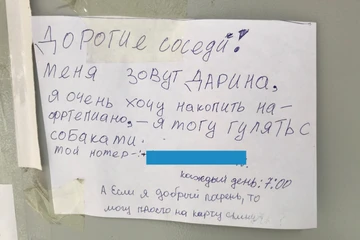 Дорогие соседи!
меня зовут Дарина,
я очень хочу накопить на-
фртепиано, – я могу гулять с
собаками.
мой номер-:
каждый день: 7:00
А Если я добрый парень, то
могу просто на карту